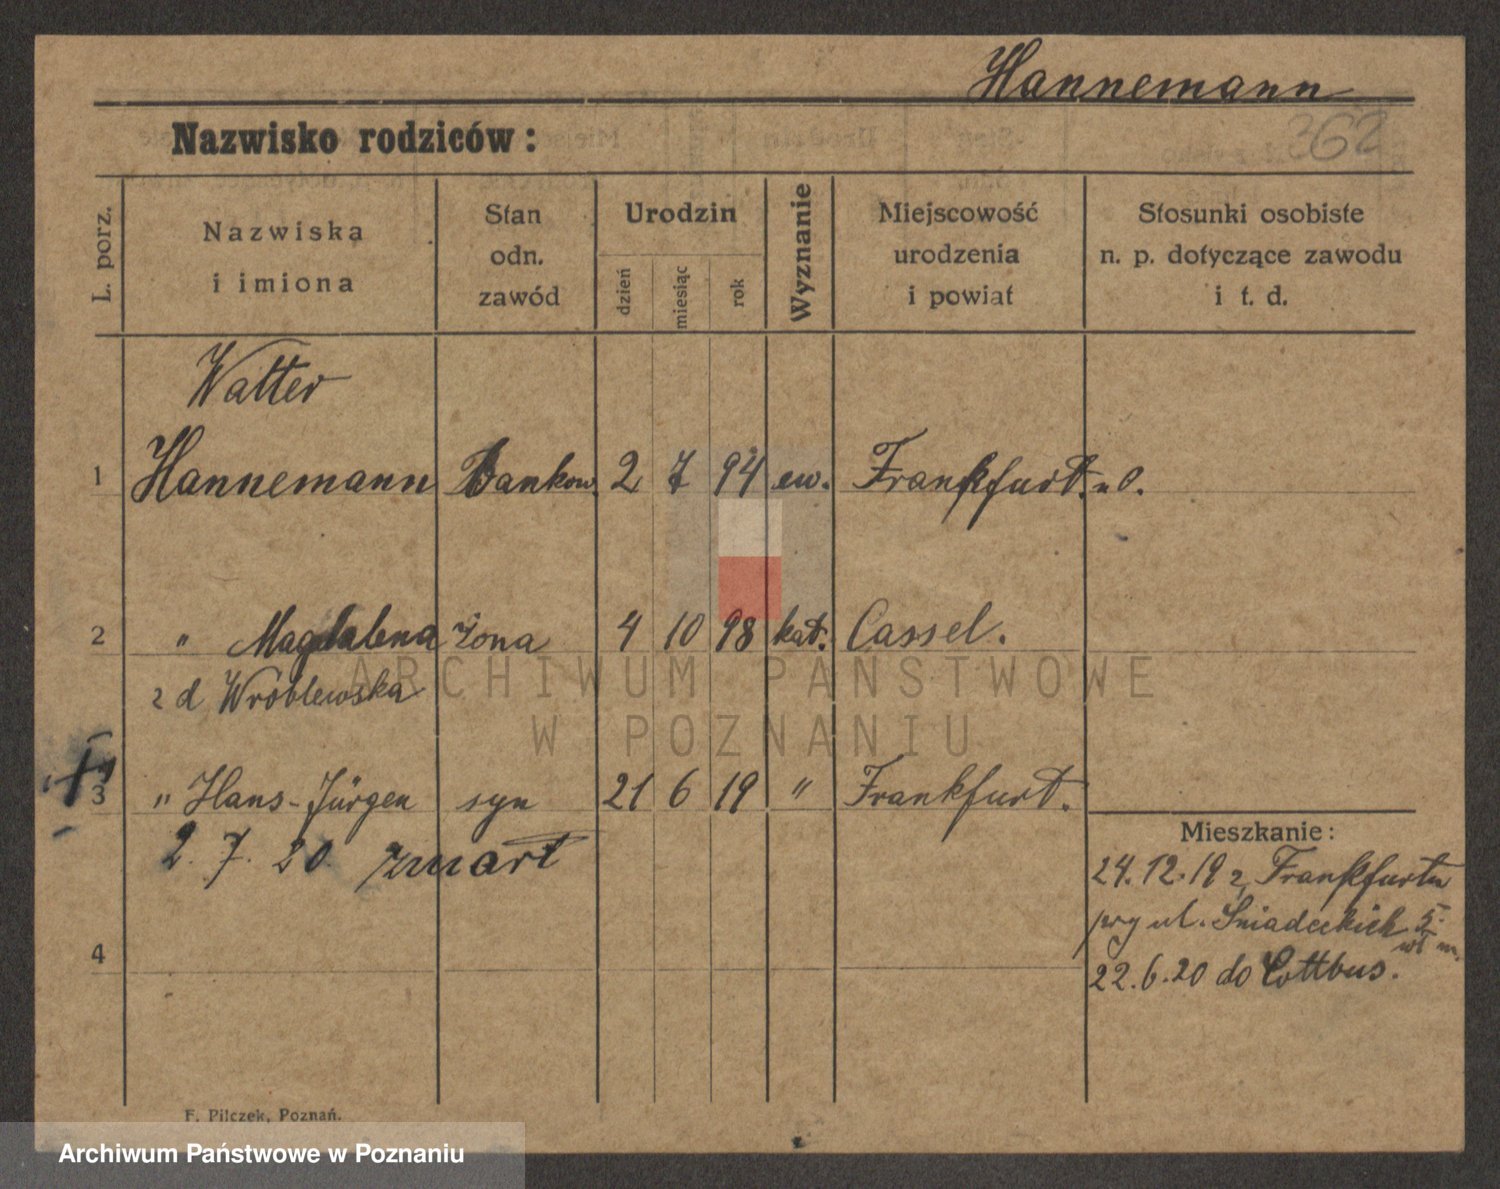 Hannemann
362
Nazwisko rodziców:
L. porz.
Nazwiska
i imiona
Stan
odn.
zawód
Urodzin
dzień
miesiąc
rok
Wyznanie
Miejscowość
urodzenia
i powiat
Stosunki osobiste
n. p. dotyczące zawodu
i t. d.
Walter
1 Hannemann Bankow. 2 7 94 ew. Frankfurt. n O.
2 " Magdalena żona 4 10 98 kat. Cassel.
z d Wróblewska
3 " Hans-Jürgen syn 21 6 19 " Frankfurt.
2. 7. 20 zmarł
4
Mieszkanie:
24.12.19 z Frankfurtu
przy ul. Śniadeckich 5.
22.6.20 do Cottbus.
F. Pilczek, Poznań.
ARCHIWUM PAŃSTWOWE
W POZNANIU
Archiwum Państwowe w Poznaniu